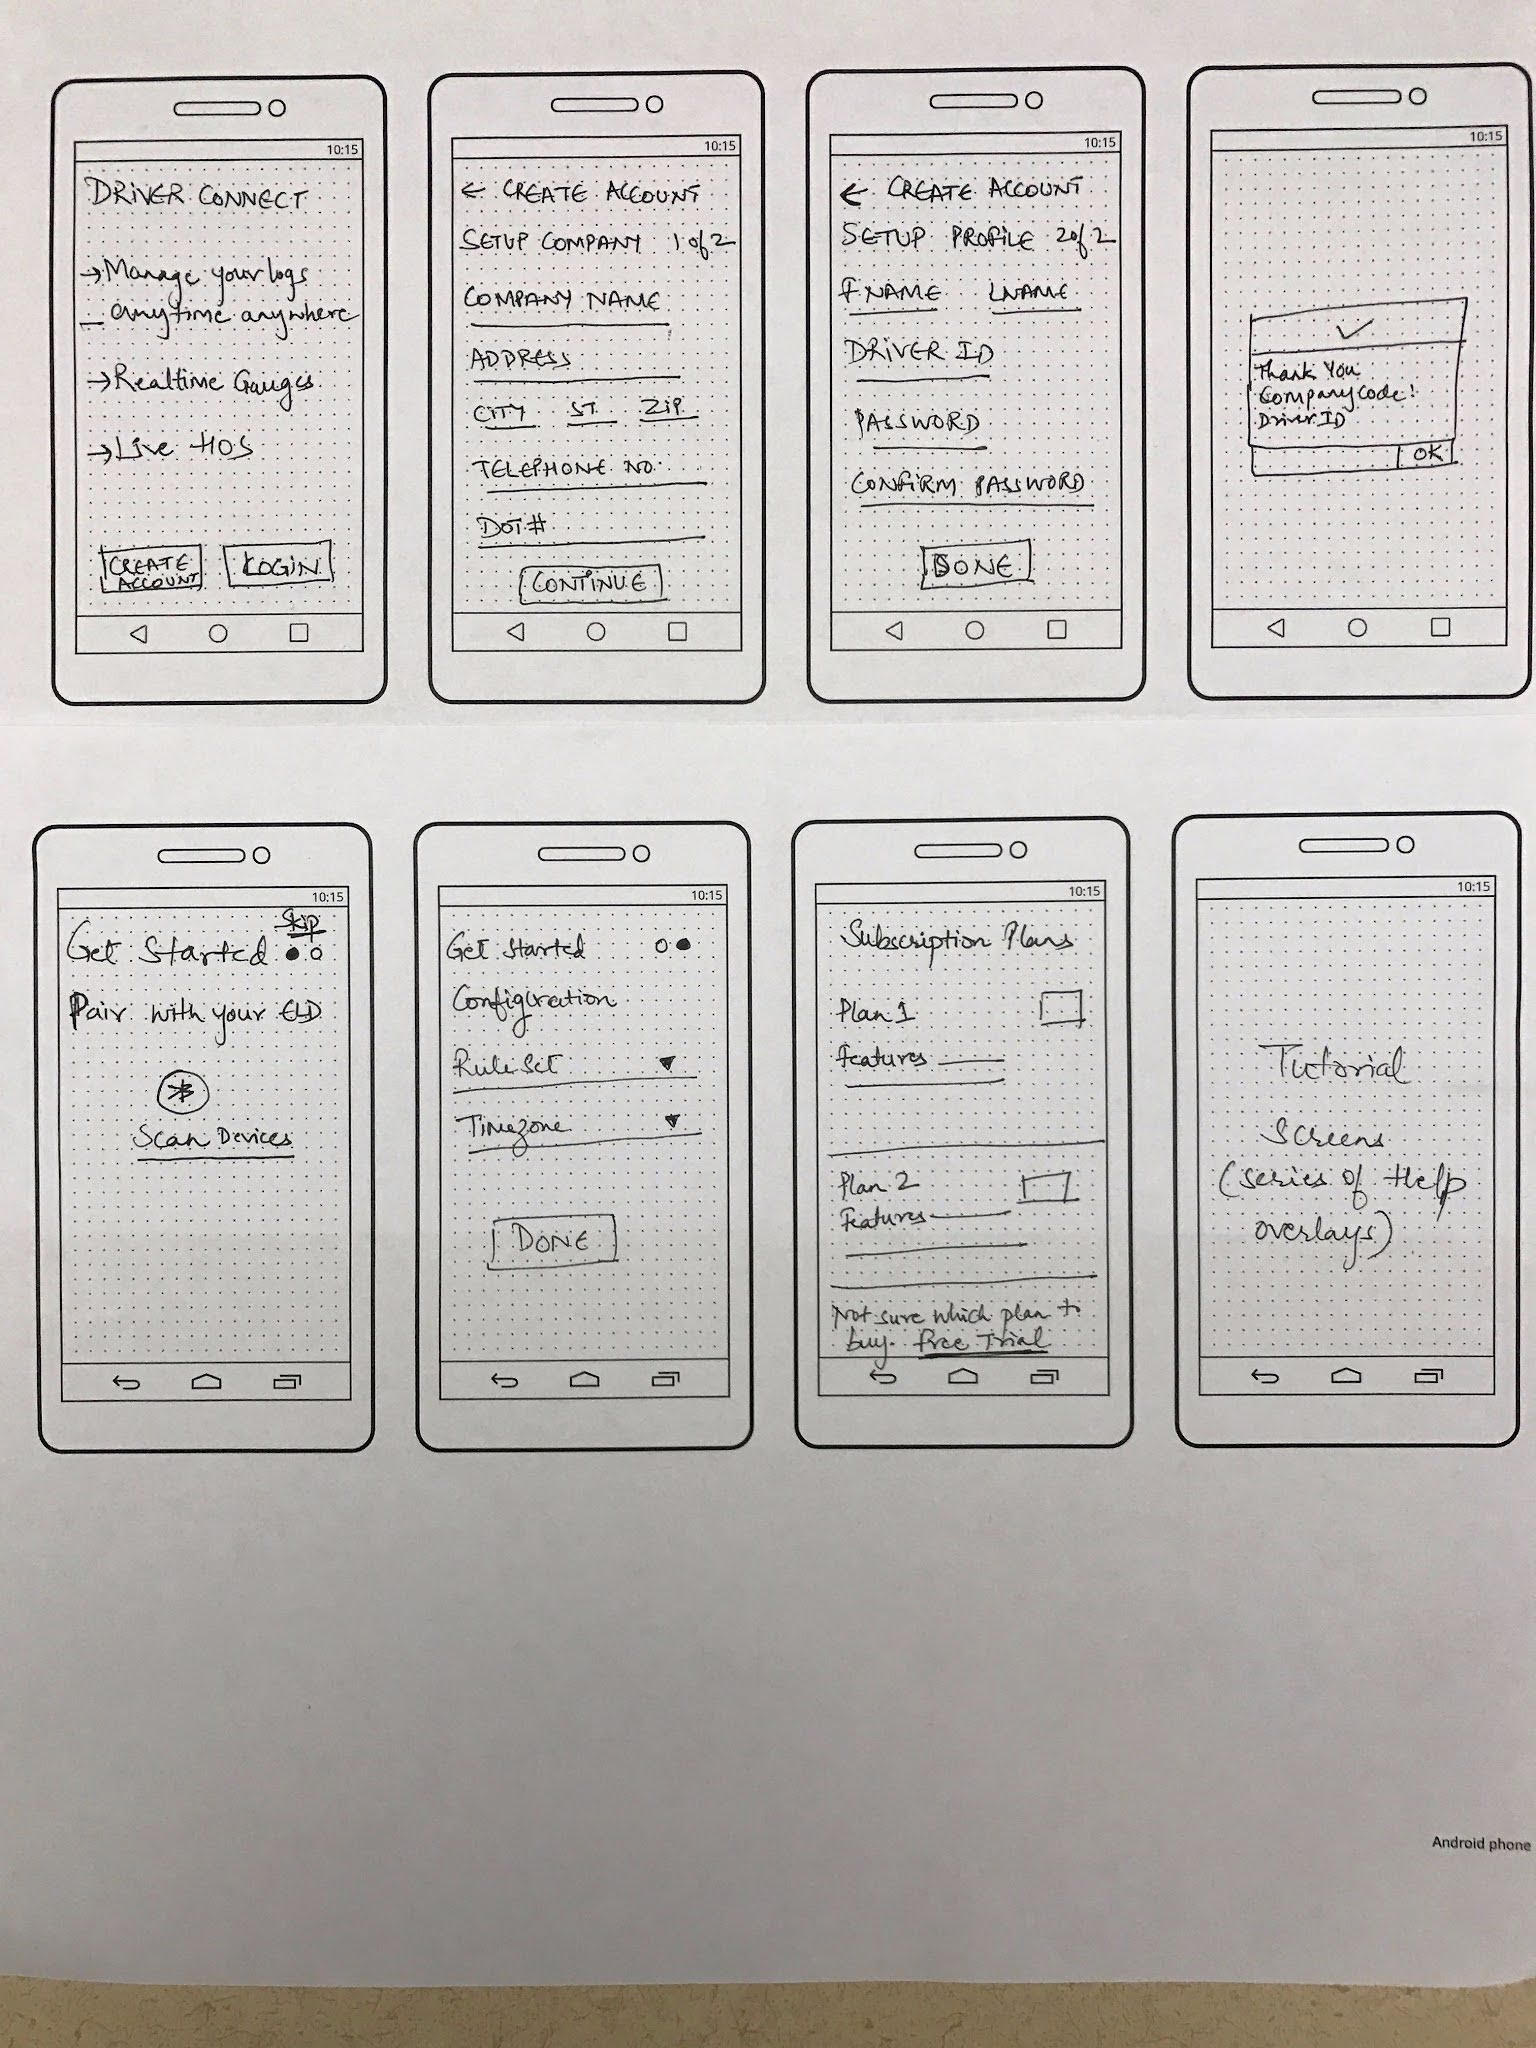 10:15
DRIVER CONNECT
→ Manage your logs
anytime anywhere
→ Realtime Gauges
→ Live HOS
CREATE
ACCOUNT
LOGIN
10:15
← CREATE ACCOUNT
SETUP COMPANY 1 of 2
COMPANY NAME
ADDRESS
CITY ST. ZIP
TELEPHONE NO.
DOT#
CONTINUE
10:15
← CREATE ACCOUNT
SETUP PROFILE 2 of 2
FNAME LNAME
DRIVER ID
PASSWORD
CONFIRM PASSWORD
DONE
10:15
Thank You
Company Code!
Driver ID
OK
10:15
Skip
Get Started
Pair with your ELD
Scan Devices
10:15
Get Started
Configuration
Rule Set
Timezone
DONE
10:15
Subscription Plans
Plan 1
Features
Plan 2
Features
Not sure which plan to
buy. Free Trial
10:15
Tutorial
Screens
(series of Help
overlays)
Android phone